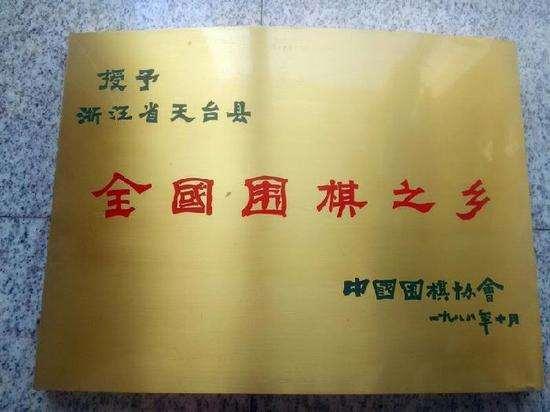 授予
浙江省天台县
全國围棋之乡
中國围棋协會
一九八八年十月